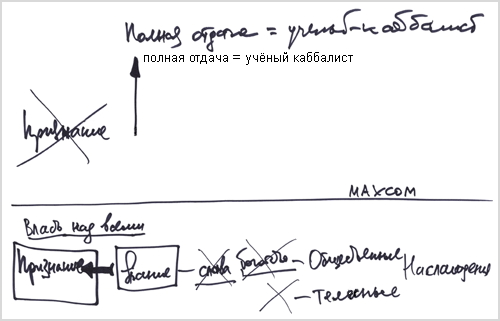 Полная отдача = учёный-каббалист
полная отдача = учёный каббалист
Признание
МАХСОМ
Власть над всеми
Признание
Знание – слава богатство – Общественные Наслаждения
– Телесные